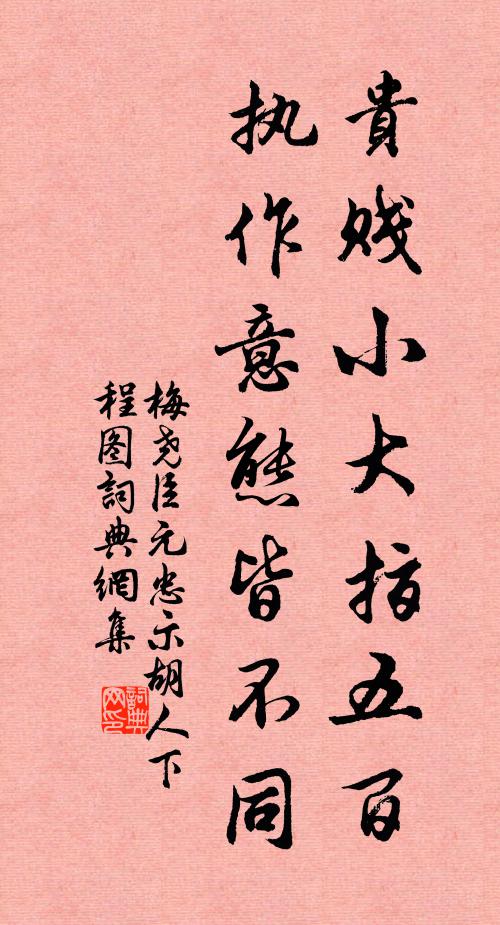 貴贱小大指五百
执作意態皆不同
梅尧臣元忠示胡人下
程图詞典網集
詞典
网印